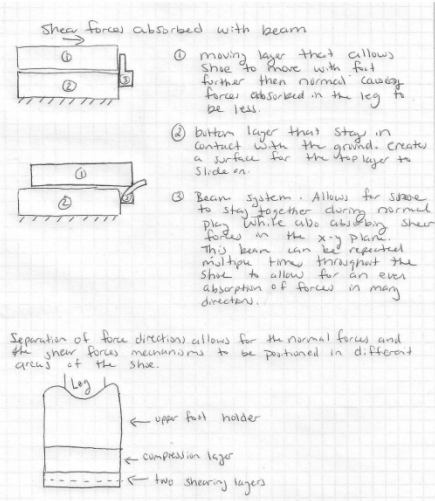 Shear forces absorbed with beam
①
②
③
① moving layer that allows
shoe to move with foot
further then normal causing
forces absorbed in the leg to
be less.
② buttom layer that stay in
contact with the ground. creates
a surface for the top layer to
slide on.
①
②
③
③ Beam system. Allows for shoe
to stay together during normal
play while also absorbing shear
forces in the x-y plane.
This beam can be repeated
multiple times throughout the
shoe to allow for an even
absorption of forces in many
directions.
Separation of force directions allows for the normal forces and
the shear forces mechanisms to be positioned in different
areas of the shoe.
Leg
upper foot holder
compression layer
two shearing layers